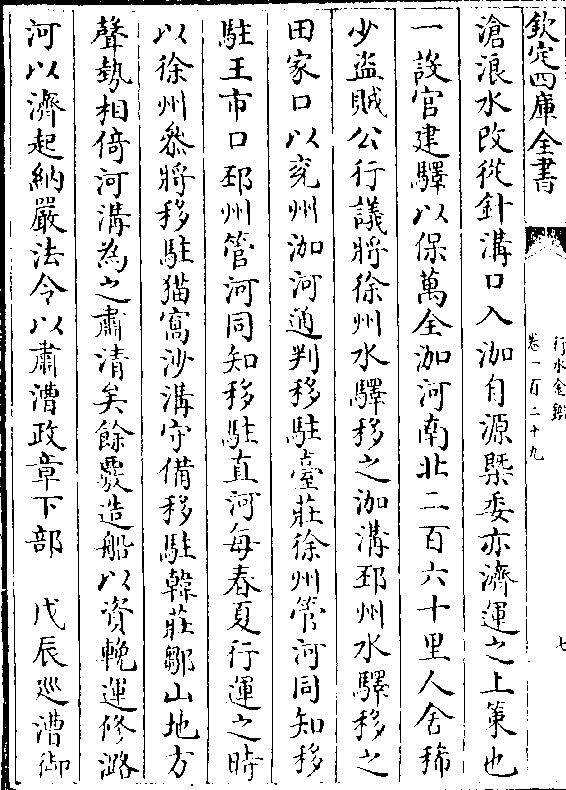 欽定四庫全書
行水金鑑
卷一百二十九
七
滄浪水改從針溝口入泇自源槩委亦濟運之上策也
一設官建驛以保萬全泇河南北二百六十里人舍稀
少盜賊公行議將徐州水驛移之泇溝邳州水驛移之
田家口以兖州泇河通判移駐臺莊徐州管河同知移
駐王市口邳州管河同知移駐直河每春夏行運之時
以徐州叅將移駐猫窩沙溝守備移駐韓莊鄒山地方
聲勢相倚河溝為之肅清矣餘覈造船以資輓運修潞
河以濟起納嚴法令以肅漕政章下部　戊辰巡漕御